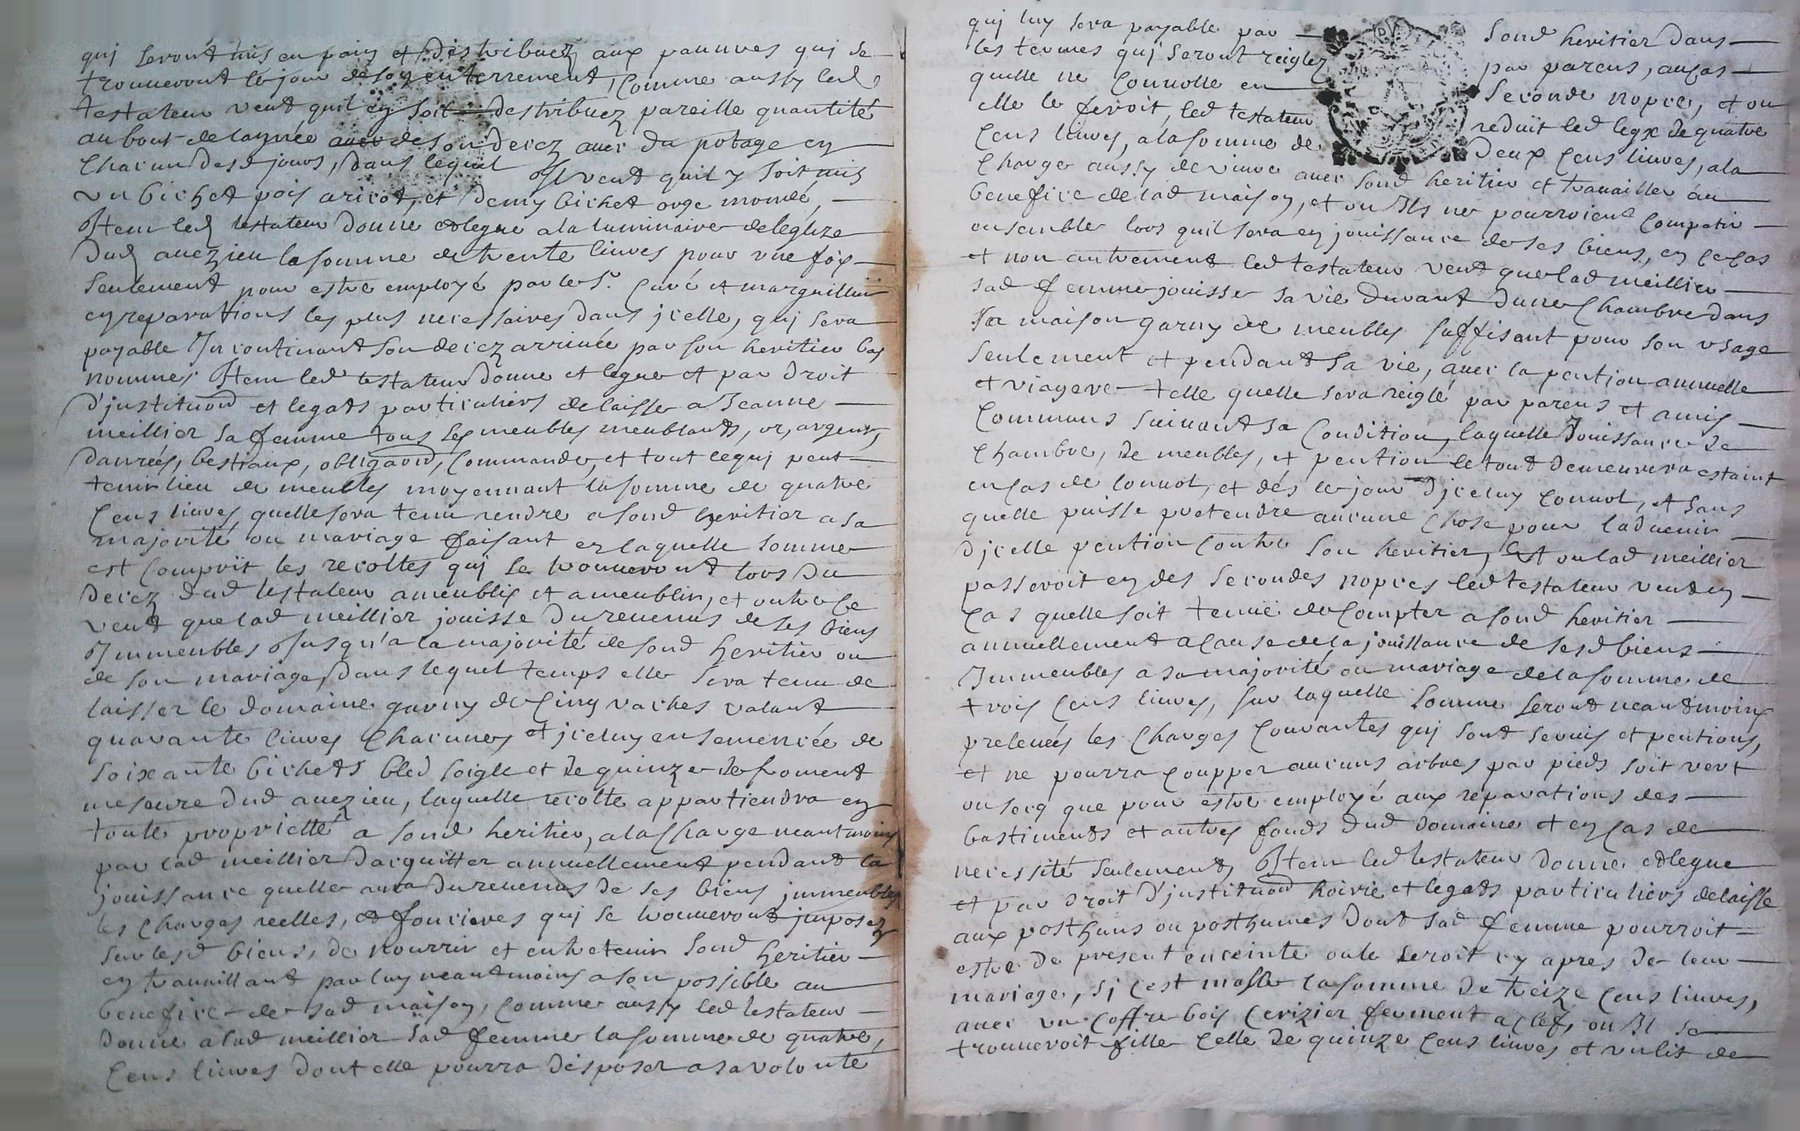 qui seront mis en pain et distribuez aux pauures qui se
trouueront le jour de son enterrement, Comme aussy led
testateur veut quil en soit distribuez pareille quantité
au bout de lannée de son decez auec du potage en
Chacun desd jours, dans lequel Il veut quil y soit mis
vn bichet pois aricot, et demy bichet orge mondé,
Item led testateur donne et legue a la luminaire de leglize
dud auezieu la somme de trente liures pour vne fois
seulement pour estre employé par le Sr. Curé et marguillier
en reparations les plus necessaires dans jcelle, qui sera
payable Incontinant son decez arriuée par son heritier bas
nommé, Item led testateur donne et legue et par droit
d'justituõn et legats particuliers delaisse a Jeanne
meillier sa femme tous ses meubles meublants, or, argent,
danrées, bestiaux, obligaõn, Commande, et tout ce qui peut
tenir lieu de meubles moyennant la somme de quatre
Cens liures quelle sera tenu rendre a sond heritier a sa
majorité ou mariage faisant en laquelle somme
est Comprit les recoltes qui se trouueront lors du
decez dud testateur ameublis et a meublir, et outre ce
veut que lad meillier jouisse du reuenus de ses biens
Immeubles Jusqu'a la majorité de sond heritier ou
de son mariage, dans lequel temps elle sera tenu de
laisser le domaine garny de Cinq vaches valant
quarante liures Chacunes et jceluy ensemencée de
soixante bichets bled soigle et de quinze de froment
mesure dud auezieu, laquelle recolte appartiendra en
toute proprietté a sond heritier, a la Charge neantmoins
par lad meillier d'acquitter annuellement pendant la
jouissance quelle aura du reuenus de ses biens jmmeubles
les Charges reelles, et foncieres qui se trouueront jmposez
sur lesd biens, de nourrir et entretenir sond heritier
en trauaillant par luy neantmoins a son possible au
benefice de sad maison, Comme aussy led testateur
donne a lad meillier sad femme la somme de quatre
Cens liures dont elle pourra disposer a sa volonté
qui luy sera payable par sond heritier dans
les termes qui seront reiglez par parens, au cas
quelle ne Conuolle en seconde nopce, et ou
elle le feroit, led testateur reduit led legx de quatre
Cens liures, a la somme de deux Cens liures, a la
Charge aussy de viure auec sond heritier et trauailler au
benefice de lad maison, et ou Ils ne pourroient Compatir
ensemble lors quil sera en jouissance de ses biens, en ce cas
et non autrement led testateur veut que lad meillier
sad femme jouisse sa vie durant dune Chambre dans
sa maison garny de meubles suffisant pour son vsage
seulement et pendant sa vie, auec la pention annuelle
et viagere telle quelle sera reiglé par parens et amis
Communs suiuant sa Condition, laquelle Jouissance de
Chambre, de meubles, et pention le tout demeurera estaint
en Cas de Conuol, et dés le jour d'jceluy Conuol, et sans
quelle puisse pretendre aucune Chose pour laduenir
djcelle pention Contre son heritier, et ou lad meillier
passeroit en des secondes nopces led testateur veut en
Cas quelle soit tenuë de Compter a sond heritier
annuellement a cause de la jouissance de sesd biens
Immeubles a sa majorité ou mariage de la somme de
trois Cens liures, sur laquelle somme seront neantmoins
preleuées les Charges Courantes qui sont seruis et pentions,
et ne pourra Coupper aucuns arbres par pieds soit vert
ou secq que pour estre employé aux reparations des
bastiments et autres fonds dud domaine et en Cas de
necessité seulement, Item led testateur donne et legue
et par droit d'justituõn hoirie et legats particuliers delaisse
aux posthums ou posthumes dont sad femme pourroit
estre de present enceinte ou le seroit cy apres de leur
mariage, si c'est masle la somme de treize Cens liures,
auec vn Coffre bois Cerizier fermant a clef, ou Il se
trouueroit fille Celle de quinze Cens liures et vn lit de